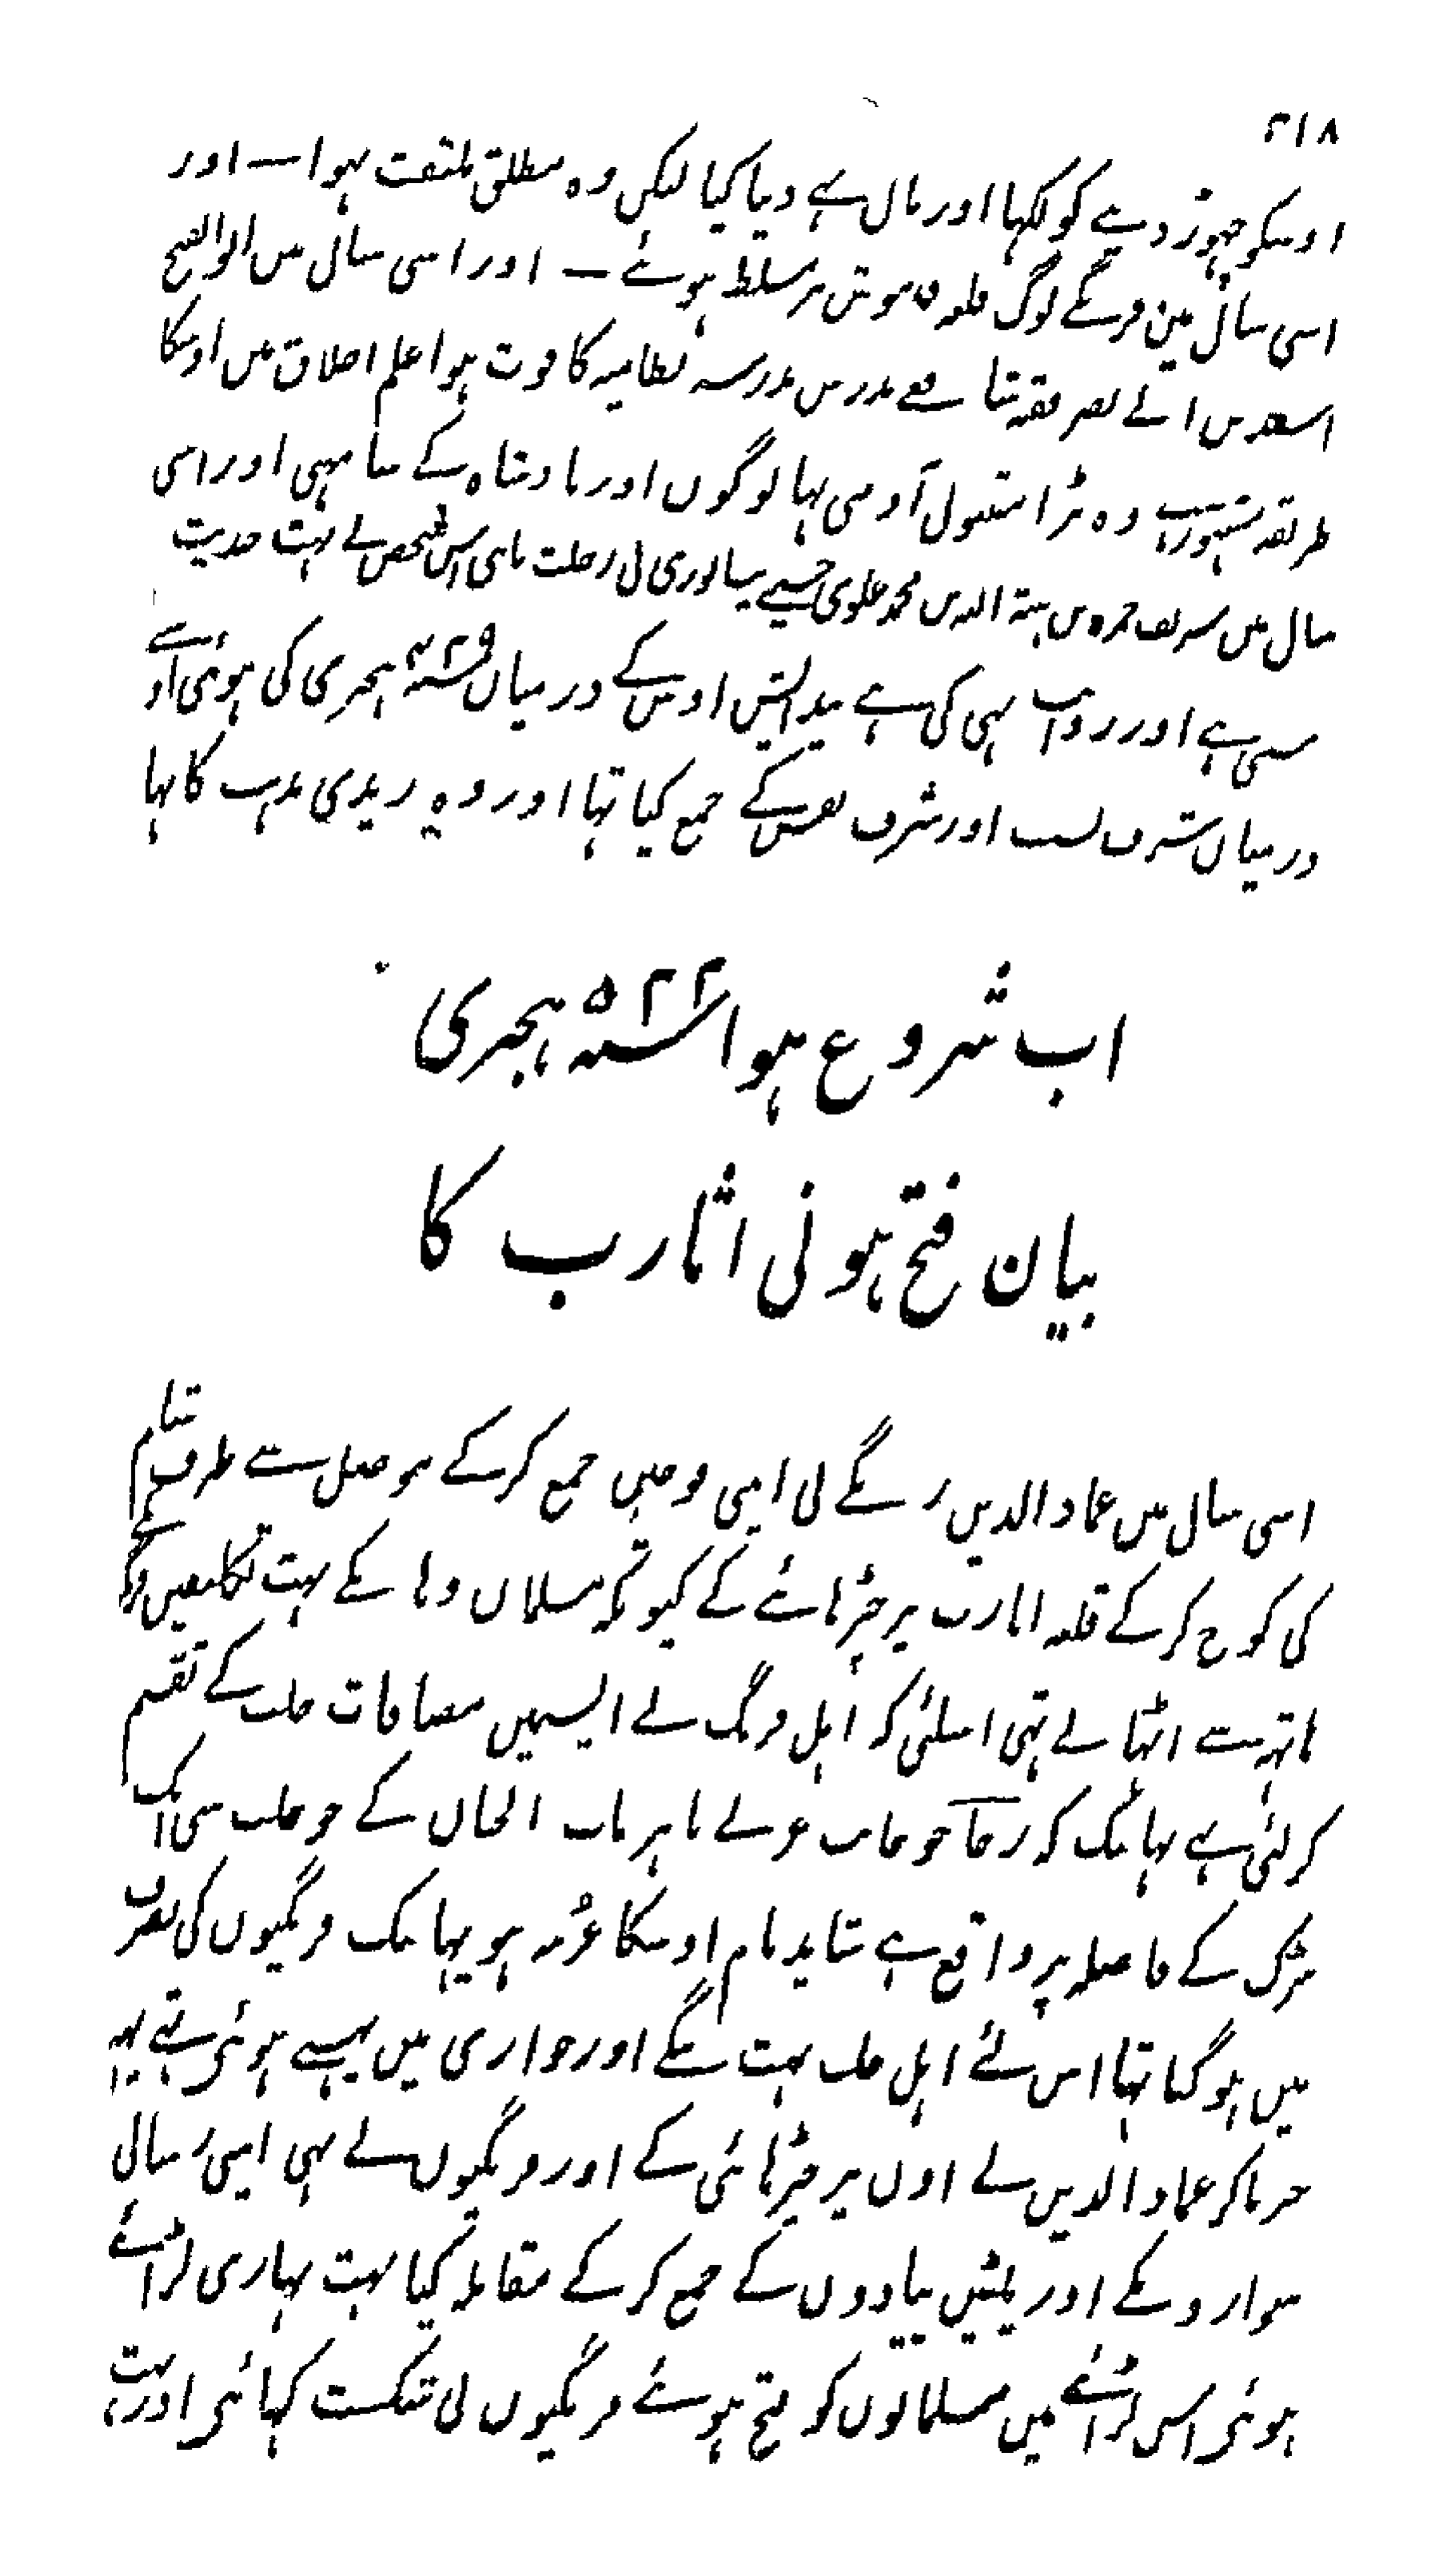 ۲۱۸
اوسکو چہوڑ دیے کو لکہا اور مال ہے دیا کیا لیکں وہ مطلق ملتفت ہوا — اور
اسی سال مین فرنگے لوگ قلعہ قدموش پر مسلط ہوئے — اور اسی سال میں ابو الفتح
اسعد بں ابے نصر فقہ شافعے مدرس مدرسہ نظامیہ کا فوت ہوا علم اخلاق میں اوسکا
طریقہ مشہور ہے وہ بڑا مقبول آدمی تہا لوگوں اور بادشاہ کے سامہی اور اسی
سال میں شریف حمزہ بں ہبۃ اللہ بں محمد علوی حسیے نیسابوری نی رحلت پای اس شخص نے بہت حدیث
سنی ہے اور روایت بہی کی ہے پیدایش اوس کے درمیاں ۴۲۹ سنہ ہجری کی ہوئی اوسے
درمیاں شرف نسب اور شرف نفس کے جمع کیا تہا اور وہ زیدی مذہب کا تہا
اب شروع ہوا سنہ ۵۲۲ ہجری
بیان فتح ہونی اثارب کا
اسی سال میں عماد الدیں زنگے نی اپنی فوجیں جمع کرکے موصل سے طرف شام
کی کوچ کرکے قلعہ اثارب پر چڑہائے کے کیونکہ مسلماں وہا نکے بہت تکلیفیں فرنگے
ہاتہہ سے اٹہاتے تہی اسلئی کہ اہل فرنگ نے ایسہیں مضافات حلب کے تقسیم
کر لئی ہے یہانتک کہ رحا جو جانب غربے باہر باب الجناں کے جو حلب سی ایک
سڑک کے فاصلہ پر واقع ہے شاید نام اوسکا عرنہ ہو یہانتک فرنگیوں کی تصرف
میں ہو گیا تہا اس لئے اہل حلب بہت تنگے اور خواری میں پہنسے ہوئی تہے یہہ
خبر پاکر عماد الدیں نے اوں پر چڑہائی کے اور فرنگیوں نے بہی اپنی رسالی
سوارونکے اور پلٹنیں پیادوں کے جمع کرکے مقابلہ کیا بہت بہاری لڑائے
ہوئی اس لڑائے میں مسلمانوں کو فتح ہوئے فرنگیوں نی شکست کہائی اور بہت